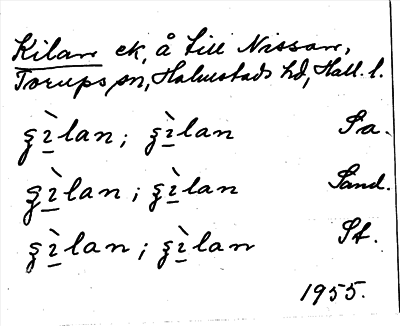 Kilan ek, å till Nissan,
Torups sn, Halmstads hd, Hall. l.
ʒ̀ılan; ʒ̀ılan Fa.
ʒ̀ılan; ʒ̀ılan Sand.
ʒ̀ılan; ʒ̀ılan St.
1955.